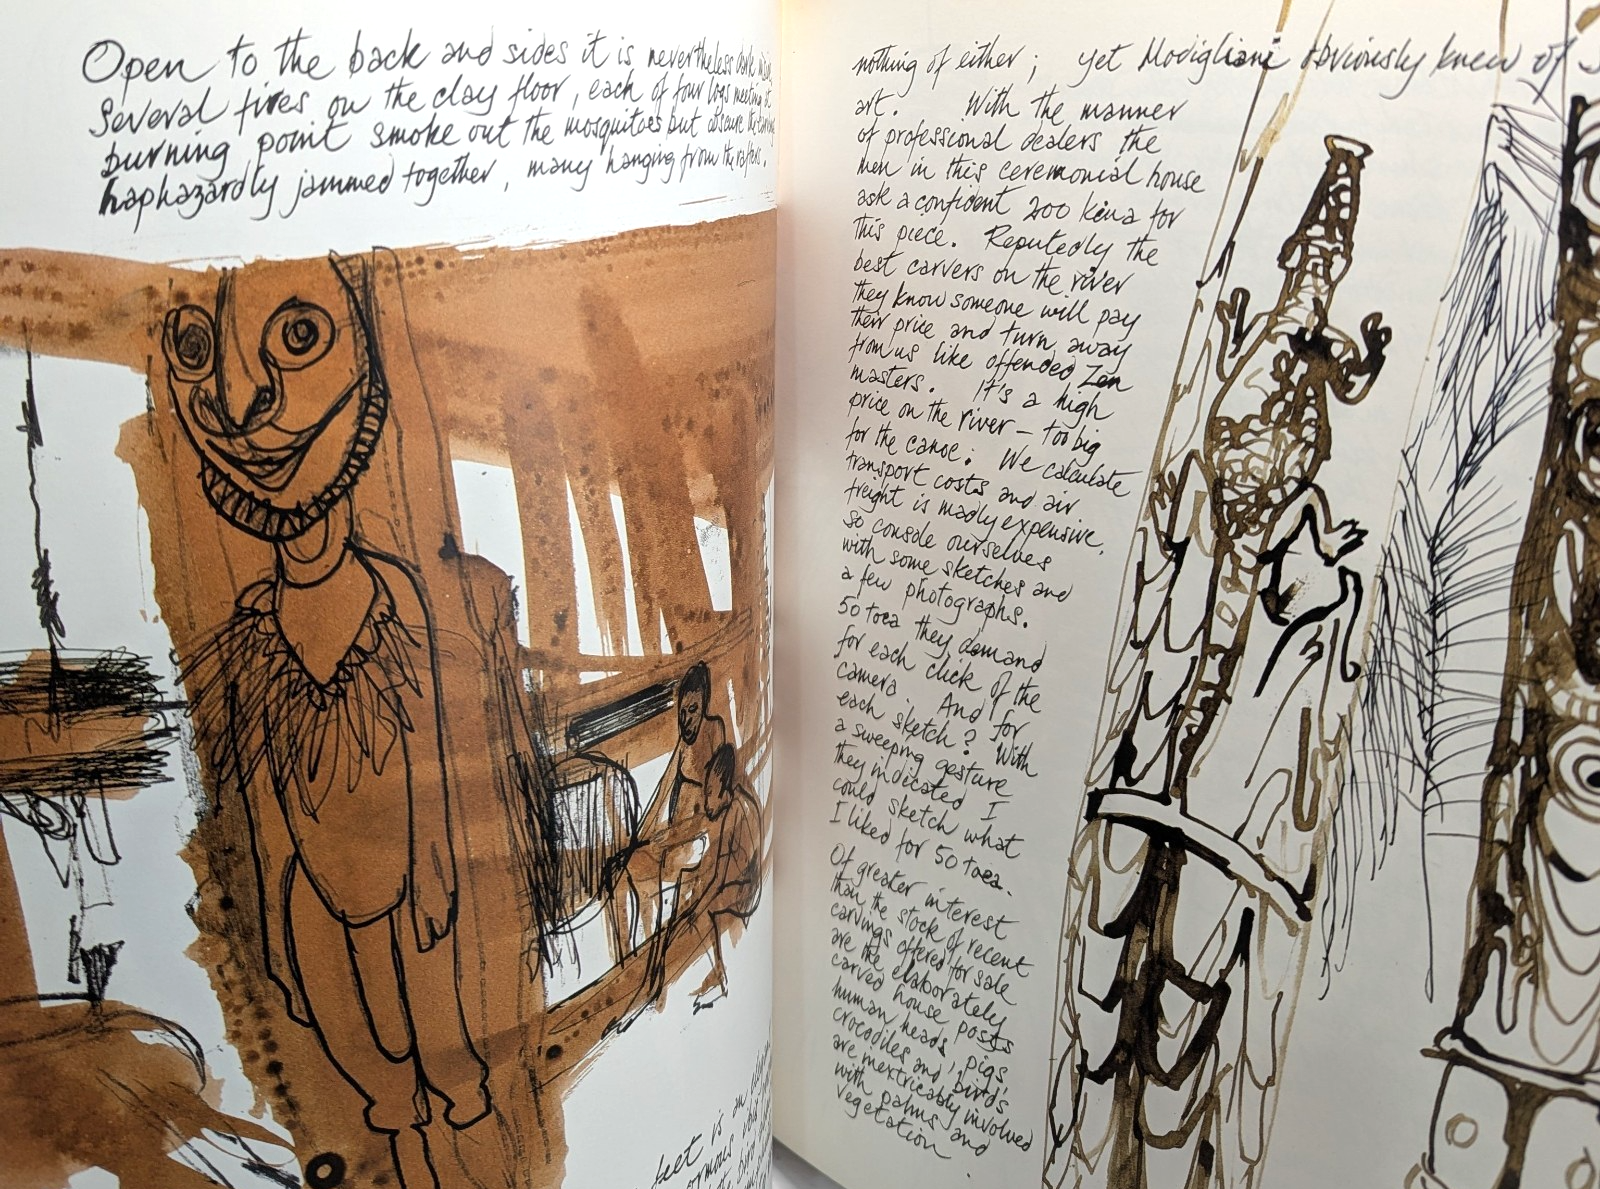 Open to the back and sides it is nevertheless dark
Several fires on the clay floor, each of four logs meeting at
burning point smoke out the mosquitoes but obscure the
haphazardly jammed together, many hanging from the rafters.
feet is an
void
the bird
nothing of either; yet Modigliani obviously knew of
art. With the manner
of professional dealers the
men in this ceremonial house
ask a confident 200 kina for
this piece. Reputedly the
best carvers on the river
they know someone will pay
their price and turn away
from us like offended Zen
masters. It's a high
price on the river – too big
for the canoe: We calculate
transport costs and air
freight is madly expensive.
so console ourselves
with some sketches and
a few photographs.
50 toea they demand
for each click of the
camera. And for
each sketch? With
a sweeping gesture
they indicated I
could sketch what
I liked for 50 toea.
Of greater interest
than the stock of recent
carvings offered for sale
are the elaborately
carved house posts
human heads, pigs
crocodiles and birds
are inextricably involved
with palms and
vegetation.